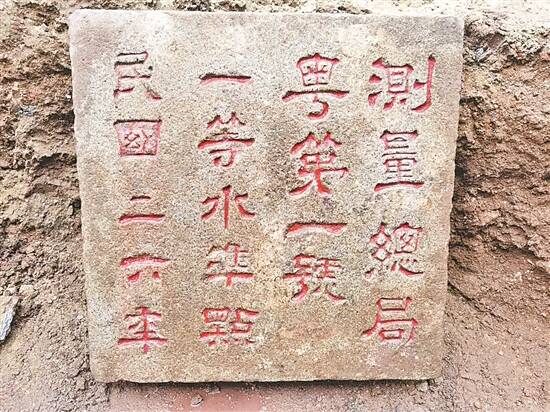 測量總局
粤第一號
一等水準點
民國二六年